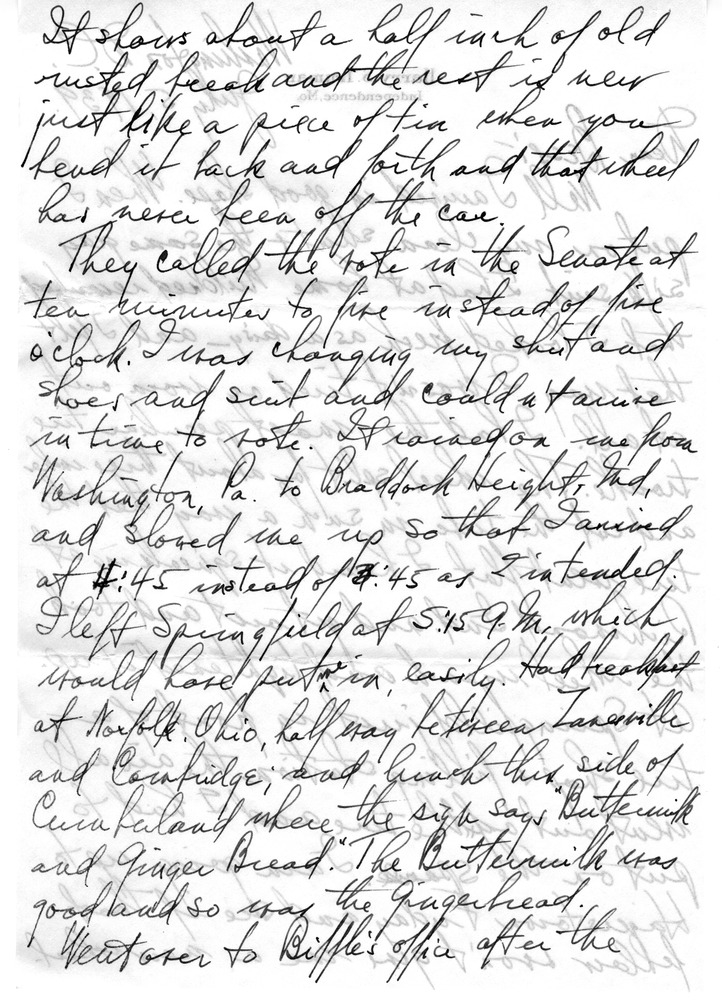 It shows about a half inch of old
rusted break and the rest is new
just like a piece of tin when you
bend it back and forth and that wheel
has never been off the car.
They called the vote in the Senate at
ten minutes to five instead of five
o'clock. I was changing my shirt and
shoes and suit and couldn't arrive
in time to vote. It rained on me from
Washington, Pa. to Braddock Heights, Md,
and slowed me up so that I arrived
at 4:45 instead of 3:45 as I intended.
I left Springfield at 5:15 A.M, which
would have put me in, easily. Had breakfast
at Norfolk, Ohio, half way between Zanesville
and Cambridge; and lunch this side of
Cumberland where the sign says "Buttermilk
and Ginger Bread." The Buttermilk was
good and so was the Gingerbread.
Went over to Biffle's office after the